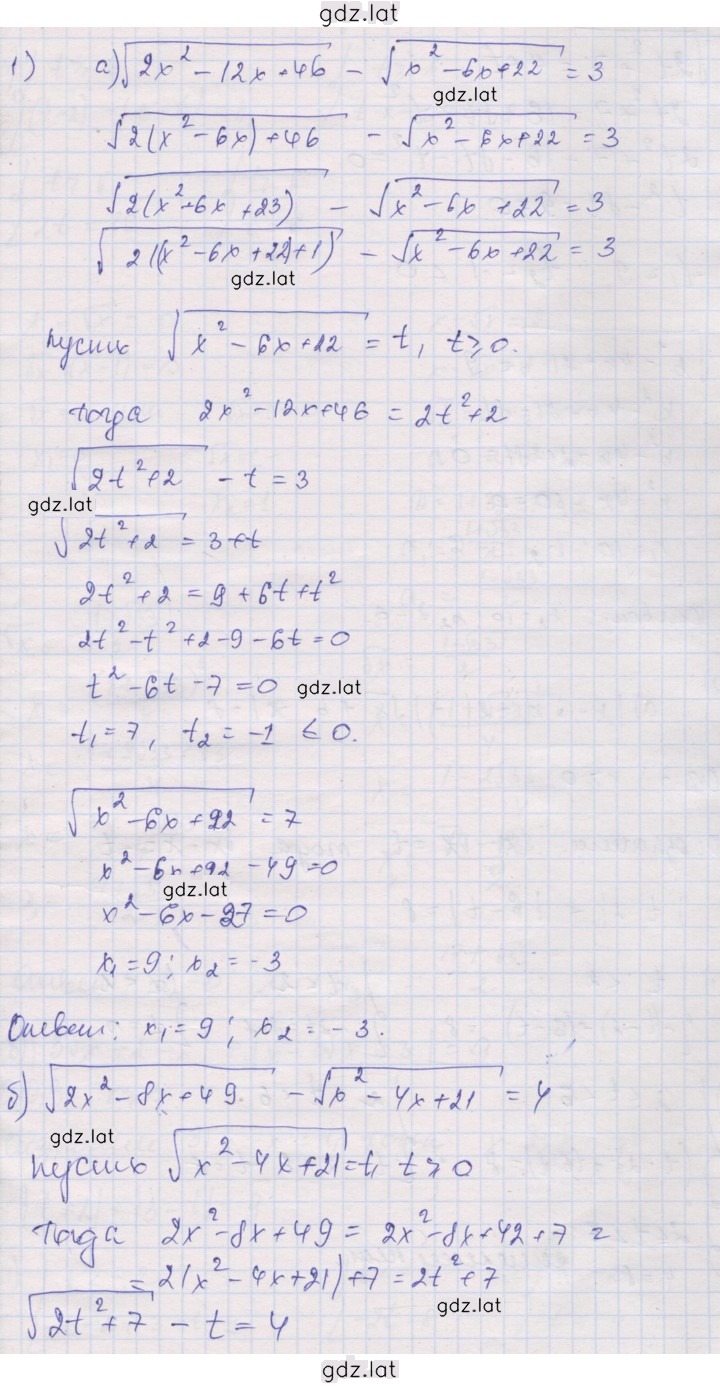 gdz.lat
1) а) √(2x² - 12x + 46) - √(x² - 6x + 22) = 3
gdz.lat
√(2(x² - 6x) + 46) - √(x² - 6x + 22) = 3
√(2(x² + 6x + 23)) - √(x² - 6x + 22) = 3
√(2((x² - 6x + 22) + 1)) - √(x² - 6x + 22) = 3
gdz.lat
пусть √(x² - 6x + 22) = t, t ≥ 0.
тогда 2x² - 12x + 46 = 2t² + 2
√(2t² + 2) - t = 3
gdz.lat
√(2t² + 2) = 3 + t
2t² + 2 = 9 + 6t + t²
2t² - t² + 2 - 9 - 6t = 0
t² - 6t - 7 = 0 gdz.lat
t₁ = 7, t₂ = -1 ≤ 0.
√(x² - 6x + 22) = 7
x² - 6x + 22 - 49 = 0
gdz.lat
x² - 6x - 27 = 0
x₁ = 9; x₂ = -3
Ответ: x₁ = 9; x₂ = -3.
б) √(2x² - 8x + 49) - √(x² - 4x + 21) = 4
gdz.lat
пусть √(x² - 4x + 21) = t, t ≥ 0
тогда 2x² - 8x + 49 = 2x² - 8x + 42 + 7 =
= 2(x² - 4x + 21) + 7 = 2t² + 7
gdz.lat
√(2t² + 7) - t = 4
gdz.lat